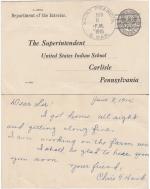 Department of the Interior.
The Superintendent
United States Indian School
Carlisle
Pennsylvania
June 7, 191
Dear Sir:
I got home all right
and getting along fine.
I am working on the farm
I shall be glad to hear from
you soon. Your friend,
Chris